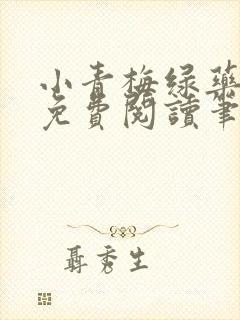 小青梅绿药
免費閱讀筆
聶秀生